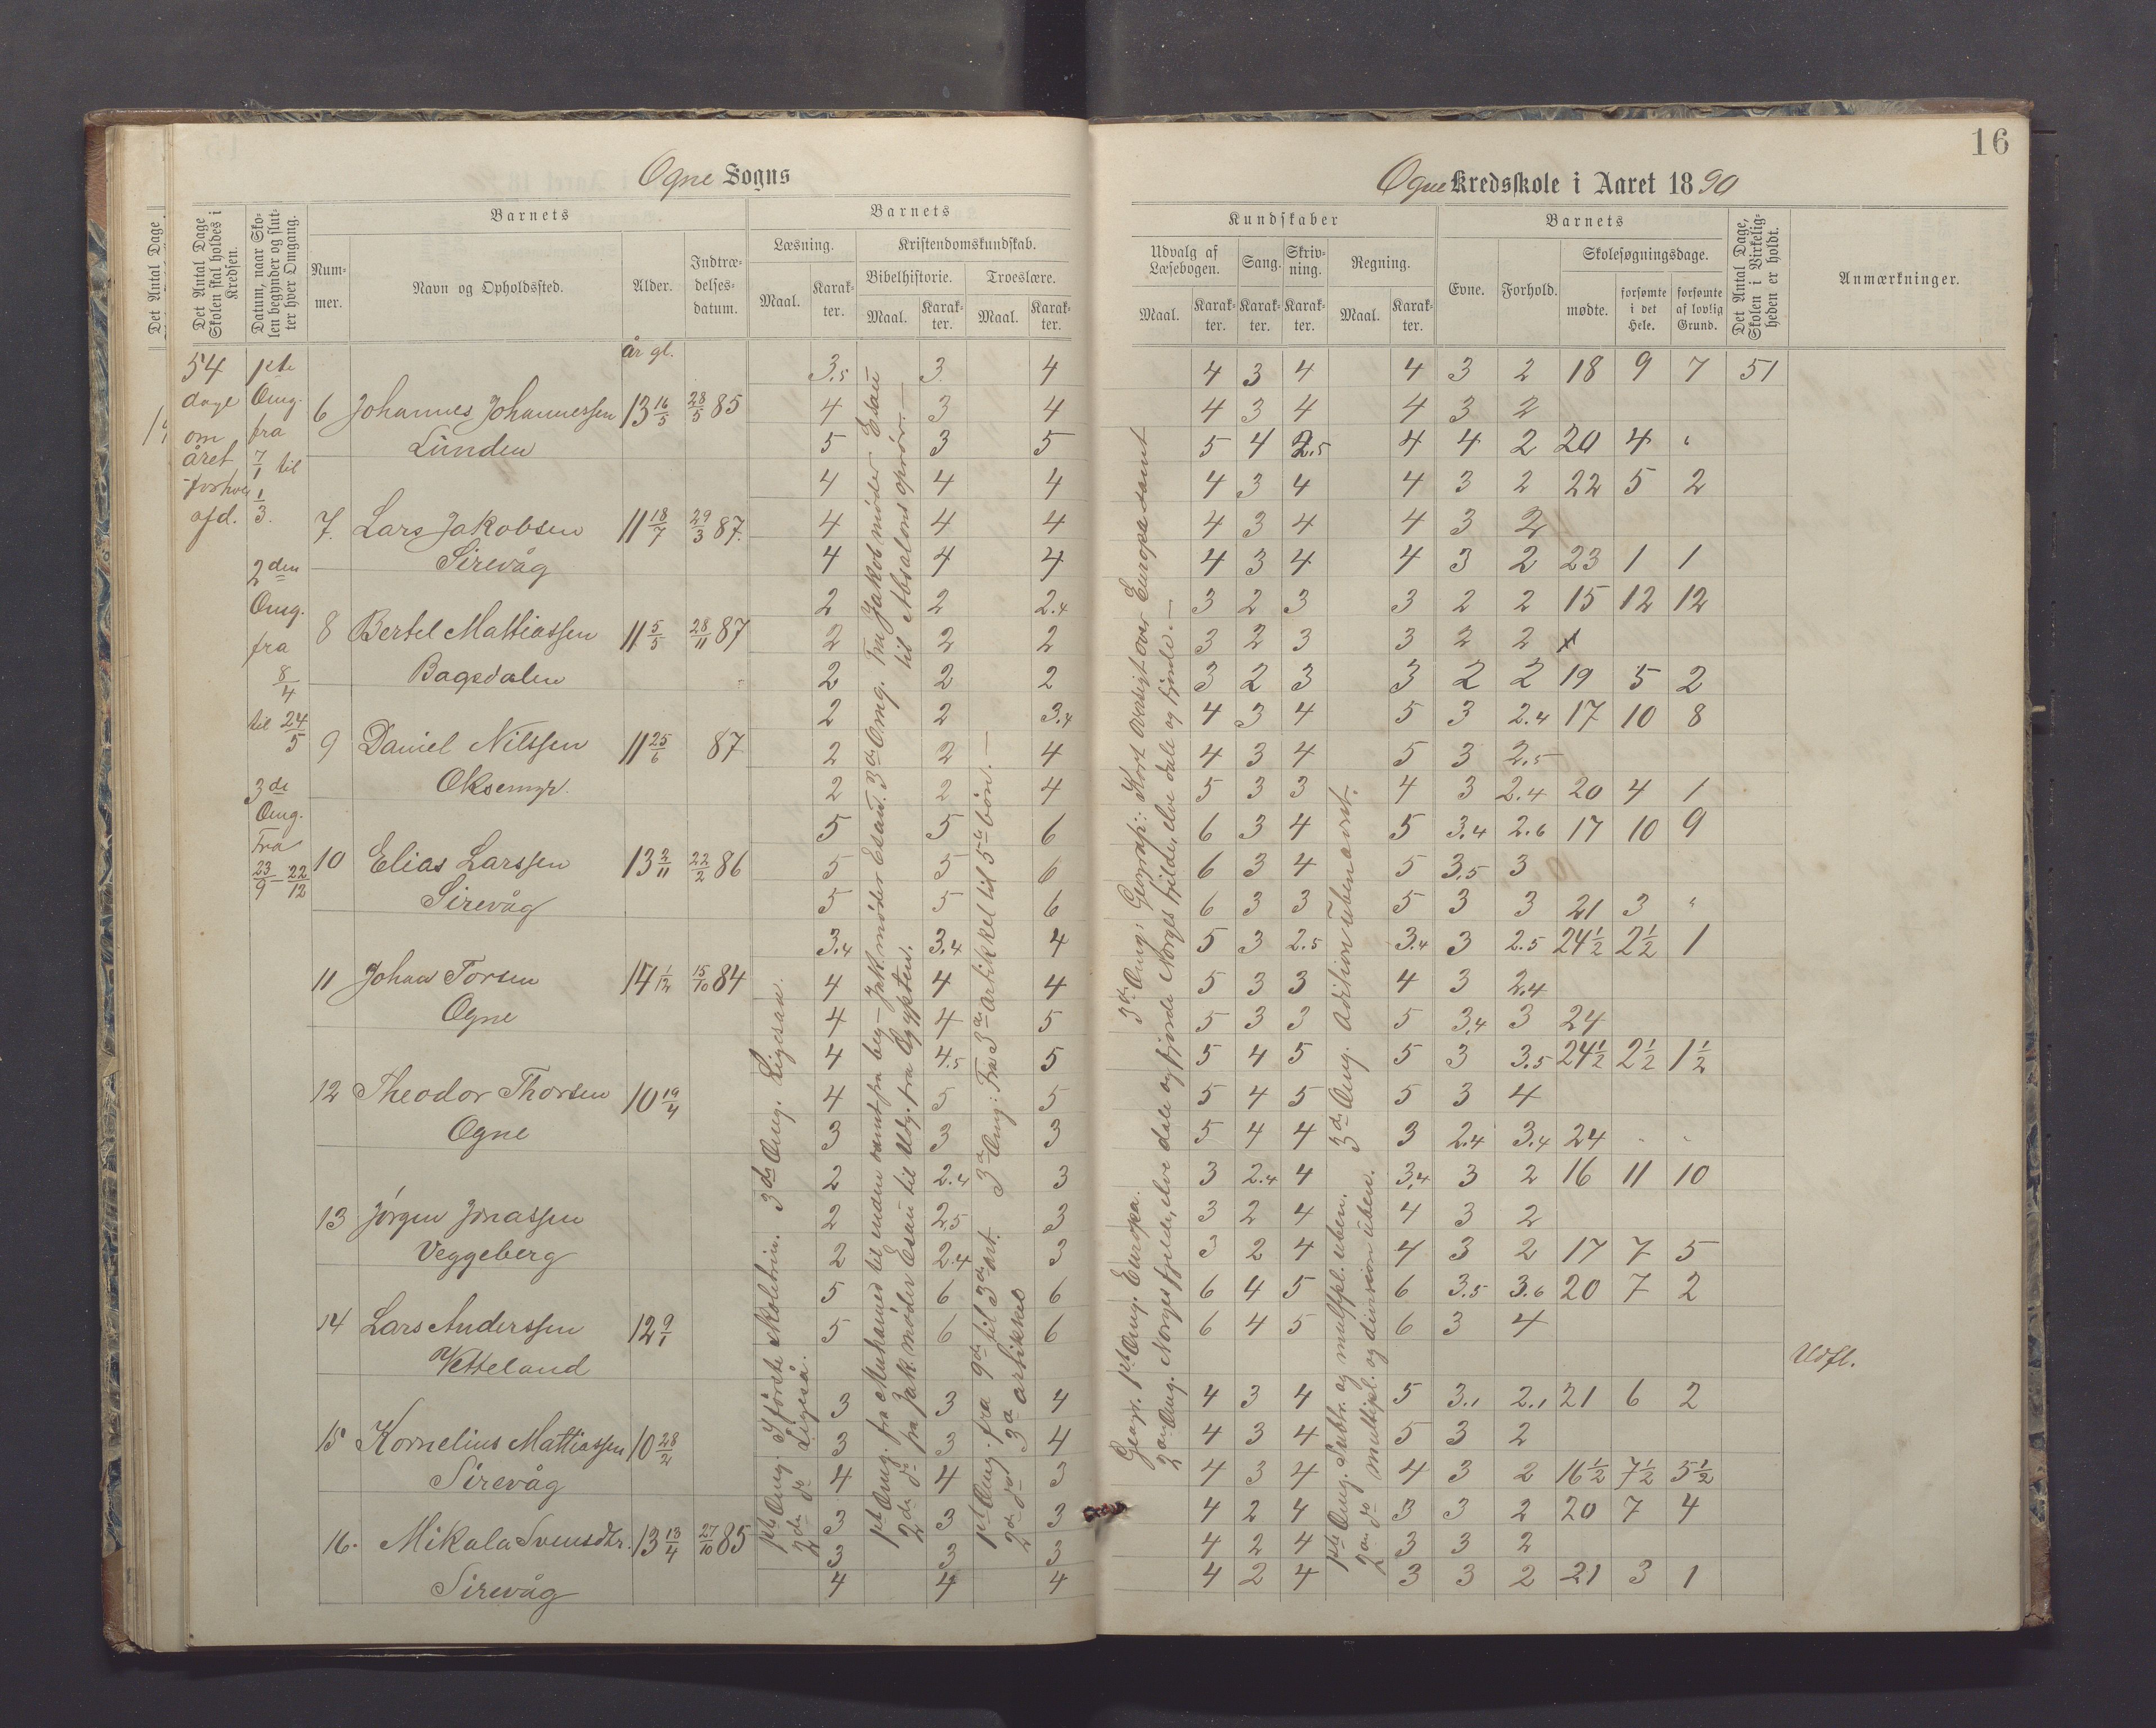 16
Ogne Sogns
Ogne Kredsskole i Aaret 1890
Det Antal Dage
Det Antal Dage Skolen skal holdes i Kredsen.
Datum, naar Skolen begynder og slutter hver Omgang.
Barnets
Nummer.
Navn og Opholdssted.
Alder.
Indtrædelsesdatum.
Barnets
Læsning.
Kristendomskundskab.
Maal.
Karakter.
Bibelhistorie.
Troeslære.
Maal.
Karakter.
Maal.
Karakter.
Kundskaber
Udvalg af Læsebogen.
Sang.
Skrivning.
Regning.
Maal.
Karakter.
Karakter.
Karakter.
Maal.
Karakter.
Barnets
Evne.
Forhold.
Skolesøgningsdage.
mødte.
forsømte i det Hele.
forsømte af lovlig Grund.
Det Antal Dage, Skolen i Virkeligheden er holdt.
Anmærkninger.
54 dage om året
1ste Omg. fra 7/1 til 1/3.
2den Omg. fra 8/4 til 24/5
3de Omg. Fra 23/9 - 22/12
år gl.
3.5 3 4 4 3 4 4 3 2 18 9 7 51
6 Johannes Johannessen 13 16/5 28/5 85 4 3 4 4 3 4 4 3 2
Lunden 5 3 5 5 4 2.5 4 4 2 20 4 "
4 4 4 4 3 4 4 3 2 22 5 2
7. Lars Jakobsen 11 18/7 29/3 87. 4 4 4 4 3 4 4 3 2
Sirevåg 4 4 4 4 3 4 4 3 2 23 1 1
2 2 2.4 3 2 3 3 2 2 15 12 12
8 Bertel Mattiassen 11 5/5 28/11 87 2 2 2 3 2 3 3 2 2
Bagsdalen 2 2 2 3 2 3 3 2 2 19 5 2
2 2 3.4 4 3 4 5 3 2.4 17 10 8
9 Daniel Nilssen 11 25/6 87 2 2 4 4 3 4 5 3 2.5
Oksemyr. 2 2 4 5 3 3 4 3 2.4 20 4 1
5 5 6 6 3 4 5 3.4 2.6 17 10 9
10 Elias Larssen 13 2/11 22/2 86 5 5 6 6 3 4 5 3.5 3
Sirevåg 5 5 6 6 3 3 5 3 3 21 3 "
3.4 3.4 4 5 3 2.5 3.4 3 2.5 24½ 2½ 1
11 Johan Torsen 14 1/12 15/10 84 4 4 4 5 3 3 4 3 2.4
Ogne 4 4 5 5 3 3 5 3.4 3 24
4 4.5 5 5 4 5 5 3 3.5 24½ 2½ 1½
12 Theodor Thorsen 10 19/4 4 5 5 5 4 5 5 3 4
Ogne 3 3 3 5 4 4 3 2.4 3.4 24 - -
2 2.4 3 3 2.4 4 3.4 3 2 16 11 10
13 Jørgen Jonassen 2 2.5 3 3 2 4 4 3 2
Veggeberg 2 2.4 3 3 2 4 4 3 2 17 7 5
5 6 6 6 4 5 6 3.5 3.6 20 7 2
14 Lars Anderssen 12 9/1 5 6 6 6 4 5 6 3 4
Vetteland Udfl.
3 3 4 4 3 4 5 3.1 2.1 21 6 2
15 Kornelius Mattiassen 10 28/2 3 3 4 4 3 4 5 3 2
Sirevåg 4 4 3 4 3 4 4 3 2 16½ 7½ 5½
3 3 3 4 2 4 3 3 2 20 7 4
16. Mikala Svensdtr. 13 13/4 27/10 85 3 3 3 4 2 4 3 3 2
Sirevåg 4 4 4 4 2 4 3 3 2 21 3 1
1ste Omg. I første skoletrin. 3de Omg. Ligesaa.
2de do Ligeså.
1ste Omg. fra Muhamed til enden samt fra beg. - Jak. møder Esau. 3de Omg. Fra Jakob møder Esau
2de do fra Jak. møder Esau til Udg. fra Ægypten. til Absalons oprør. —
1ste Omg. fra 9de til 3de art. 3de Omg: Fra 3de artikkel til 5te bøn. —
2de do 3de artikkel
Geogr. 1ste Omg. Europa. 3de Omg: Geograf: Kort oversigt over Europa samt
2den Omg. Norges fjelde, elve dale og fjorde Norges fjelde, elve dale og fjorde. —
1ste Omg. Subtr. og multpl. uben. 3de Omg. Adition ubenævnt.
2den do multipl. og division uben.